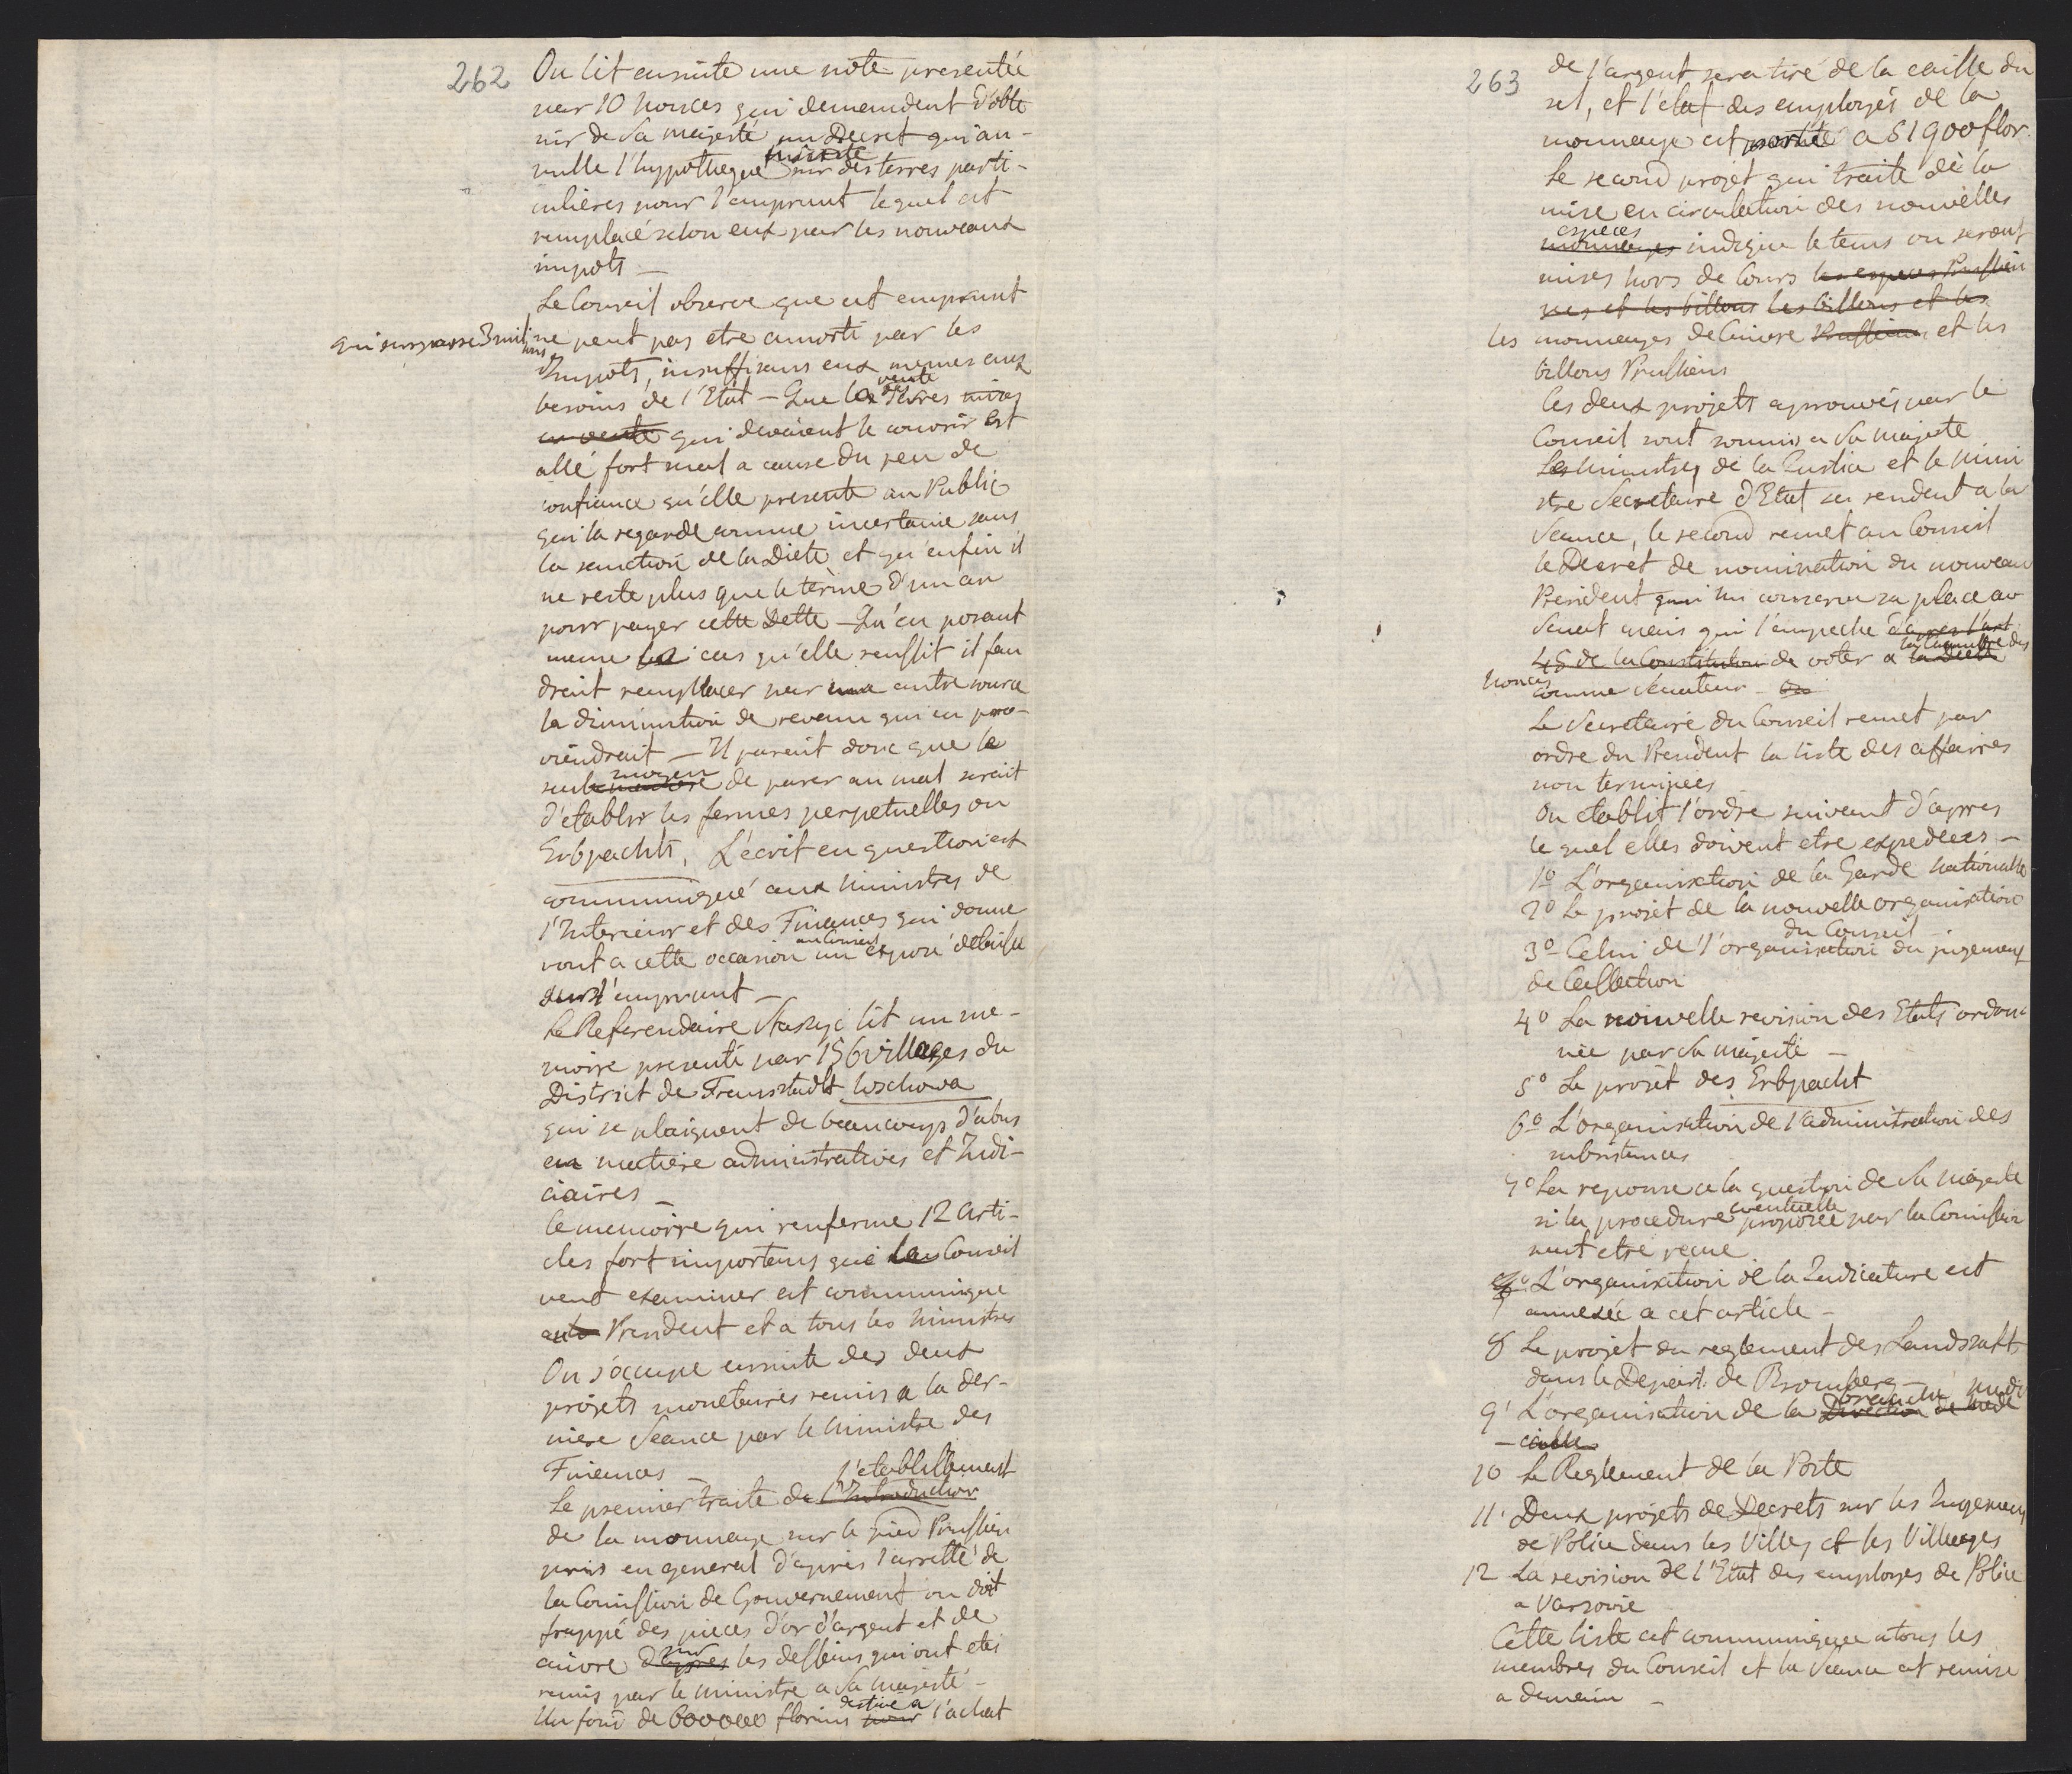 262
On lit ensuite une note presentée
par 10 nonces qui demandent d'obte
nir de Sa majesté un Decret qui an-
nulle l'hypotheque sur des terres parti-
culières pour l'emprunt lequel est
remplacé selon eux par les nouveaux
impots —
Le Conseil observe que cet emprunt
qui surpasse 3 mil
lions
ne peut pas etre amorti par les
Impots, insuffisans eux memes aux
besoins de l'Etat — Que la vente des Terres mises
en vente qui devaient le couvrir est
allé fort mal a cause du peu de
confiance qu'elle presente au Public
qui la regarde comme incertaine sans
la sanction de la Diete et qu'enfin il
ne reste plus que le terme d'un an
pour payer cette Dette — Qu'en posant
meme le cas qu'elle reussit il fau
drait remplacer par une autre source
la diminution de revenu qui en pro-
viendrait — Il parait donc que le
seul moyen de parer au mal serait
d'etablir les fermes perpetuelles ou
Erbpachts, L'écrit en question est
communiqué aux Ministres de
l'Interieur et des Finances qui donne
ront a cette occasion au Conseil un exposé detaillé
sur l'emprunt —
Le Referendaire Staszyc lit un me-
moire presenté par 156 villages du
District de Fraustadt Wschowa
qui se plaignent de beaucoup d'abus
en matière administratives et Judi-
ciaires —
Ce memoire qui renferme 12 arti-
cles fort importans que le Conseil
veut examiner est communique
au President et a tous les Ministres
On s'occupe ensuite des deux
projets monetaires remis a la der-
niere Seance par le Ministre des
Finances —
Le premier traite de l'Introduction l'etablissement
de la monnaye sur le pied Prussien
pris en general d'après l'arretté de
la Comission de Gouvernement on doit
frappé des pieces d'or d'argent et de
cuivre d'apres sur les desseins qui ont etés
remis par le ministre a Sa majesté —
Un fond de 600000 florins pour destiné a l'achat
263
de l'argent sera tiré de la caisse du
sel, et l'etat des employés de la
monnaye est porté a 61900 flor.
Le second projet qui traite de la
mise en circulation des nouvelles
monnayes especes indique le tems ou seront
mises hors de Cours les especes Prussien
nes et les billons les billons et les
les monnayes de Cuivre Prussiens et les
billons Prussiens
Ces deux projets aprouvés par le
Conseil sont soumis a Sa majesté
Les Ministres de la Justice et le Mini
stre Secretaire d'Etat se rendent a la
Seance, le second remet au Conseil
le Decret de nomination du nouveau
President qui lui conserve sa place au
Senat mais qui l'empeche d'apres l'art
45 de la Constitution de voter a la Diete la chambre des
nonces
comme Senateur —
Le Secretaire du Conseil remet par
ordre du President la liste des affaires
non terminées
On etablit l'ordre suivant d'apres
le quel elles doivent etre expediees —
1o L'organisation de la Garde Nationalle
2o Le projet de la nouvelle organisation
du Conseil —
3o Celui de l'organisation du jugement
de Cassation
4o La nouvelle revision des Etats ordon-
née par Sa Majesté —
5o Le projet des Erbpacht
6o L'organisation de l'administration des
subsistances
7o La reponse a la question de Sa Majesté
si la procedure eventuelle proposée par la Comission
peut etre reçue
L'organisation de la Judicature est
annexée a cet article —
8 Le projet du reglement des Landszaft
dans le Depart. de Bromberg —
9' L'organisation de la Direction de mede branche medi
— cale
10 Le Reglement de la Poste
11' Deux projets de Decrets sur les Jugemens
de Police dans les Villes et les Villages
12 La revision de l'Etat des employes de Police
a Varsovie
Cette liste est communiquée a tous les
membres du Conseil et la Seance est remise
a demain —